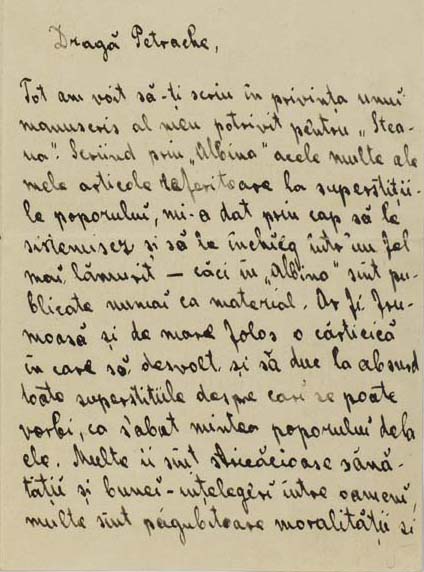 Dragă Petrache,
Tot am voit să-ți scriu în privința unui
manuscris al meu potrivit pentru „Stea-
ua”. Scriind prin „Albina” acele multe ale
mele articole referitoare la superstiții-
le poporului, mi-a dat prin cap să le
sistemisez și să le închieg într'un fel
mai lămurit — căci în „Albina” sînt pu-
blicate numai ca material. Ar fi fru-
moasă și de mare folos o cărticică
în care să desvolt și să duc la absurd
toate superstițiile despre cari se poate
vorbi, ca s'abat mintea poporului dela
ele. Multe îi sînt stricăcioase sănă-
tății și bunei-înțelegeri între oameni,
multe sînt păgubitoare moralității și